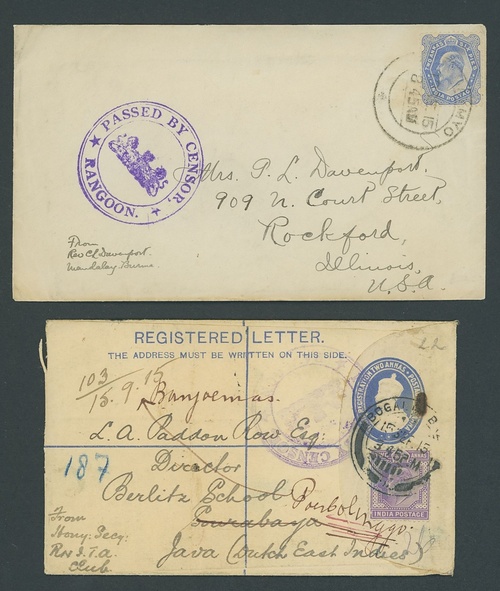 TWO ANNAS & SIX PIES
INDIA POSTAGE
MYO
15
8 45AM
PASSED BY CENSOR,
RANGOON.
Mrs. P. L. Davenport.
909 N. Court Street,
Rockford,
Illinois,
U.S.A.
From
Rev C L Davenport.
Mandalay Burma
REGISTERED LETTER.
THE ADDRESS MUST BE WRITTEN ON THIS SIDE.
22
103
15.9.15
Banjoemas.
REGISTRATION TWO ANNAS
L.A. Paddon Row Esq:
Director
187
CENS
INDIA POSTAGE
Berlitz School
Sourabaya
Poerbolinggo.
Java (Dutch East Indies)
From
Hony: Secy:
R I.T.A.
Club.